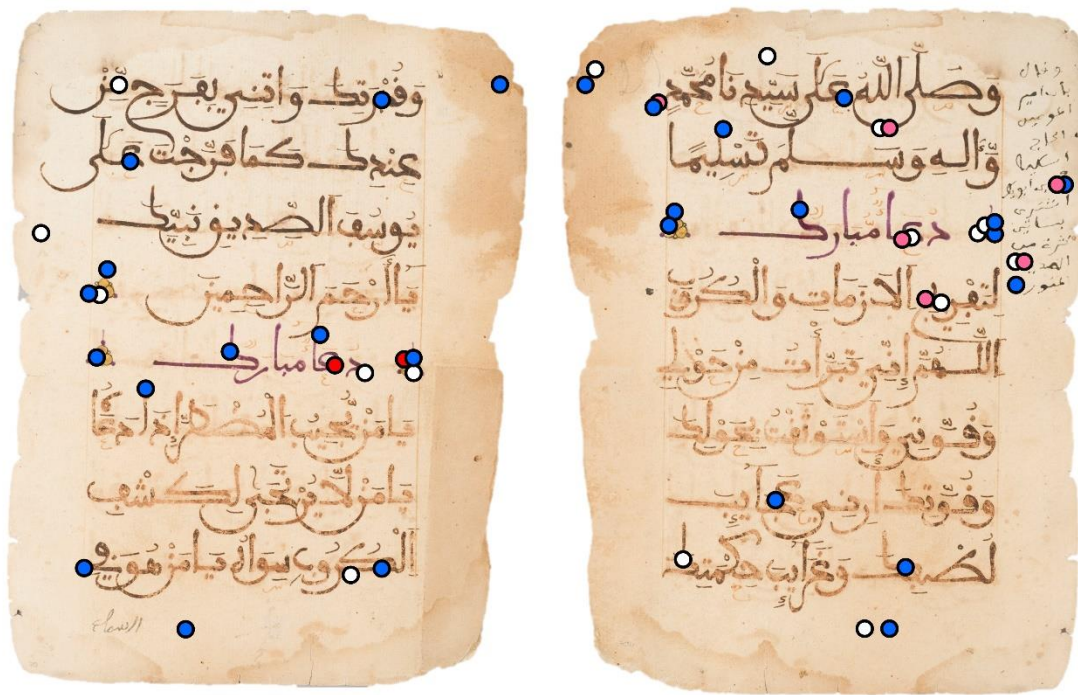 وَصَلَّى اللَّهُ عَلَى سَيِّدِنَا مُحَمَّدٍ
وَّءَالِهِ وَسَلَّمَ تَسْلِيمًا
دعا مبارك
لتفريج الازمات والكروب
اللهم إني تبرأت من حولي
وقوتي واستوثقت بحولك
وقوتك ارني عجايب
وغرايب حكمتك
وقال
امير
المومنين
وقوتك واتني بفرج من
عندك كما فرجت على
يوسف الصديق نبيك
يا أرحم الراحمين
دعا مبارك
يا من يجيب المضطر إذا دعا
يا من لا يرتجى لكشف
الكروب سواه ويا من هو في
السماء